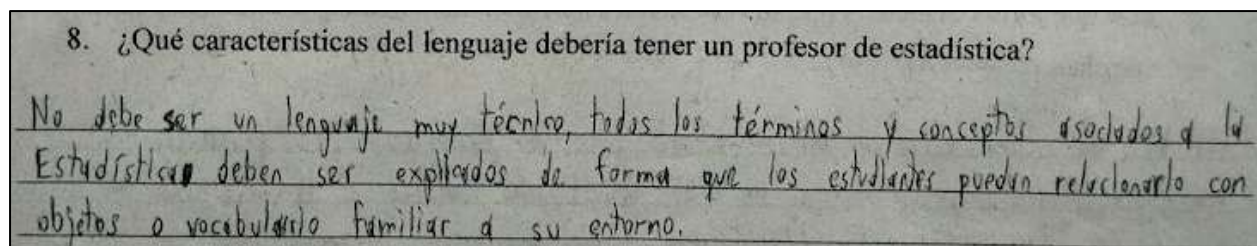 8. ¿Qué características del lenguaje debería tener un profesor de estadística?
No debe ser un lenguaje muy técnico, todos los términos y conceptos asociados a la
Estadística deben ser explicados de forma que los estudiantes puedan relacionarlo con
objetos o vocabulario familiar a su entorno.